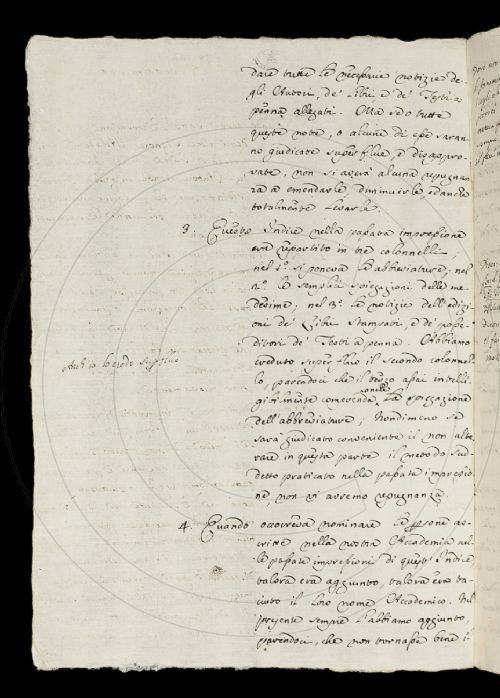 dare tutte le necessarie notizie de-
gli Autori, de' Libri e de' Testi a
penna allegati. Ma se o tutte
queste note, o alcune di esse saran-
no giudicate superflue, e disappro-
vate, non si averà alcuna repugnan-
za a emendarle diminuirle, ed anche
totalmente levarle.
3. Questo Indice nella passata impressione
era repartito in tre colonnelli;
nel 1.º si poneva le abbreviature; nel
2.º le semplici spiegazioni delle me-
desime; nel 3.º le notizie dell'edizi-
oni de' Libri Stampati, e de' posse-
ditori de' Testi a penna. Abbiamo
creduto superfluo il secondo colonnel-
lo, parendoci che il terzo assai intelli-
gibilmente comprenda la spiegazione
dell'abbreviature; Nondimeno se
sarà giudicato conveniente il non alte-
rare in questa parte il metodo sud-
detto praticato nella passata impressio-
ne, non vi avremo repugnanza.
Anch'io lo credo superfluo
4. Quando occorreva nominare le persone as-
critte nella nostra Accademia nel-
le passate impressioni di quest'Indice
talora era aggiunto, talora era ta-
ciuto il loro nome Accademico. Nel
presente sempre l'abbiamo aggiunto
parendoci, che non tornasse bene i-